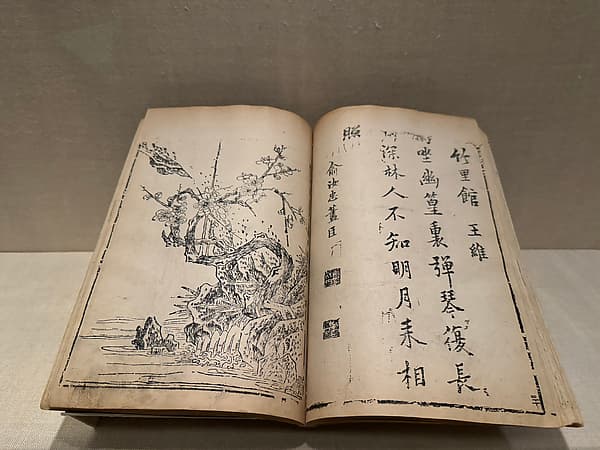 竹里館 王維
坐幽篁裏彈琴復長
深林人不知明月来相
照
俞汝忠